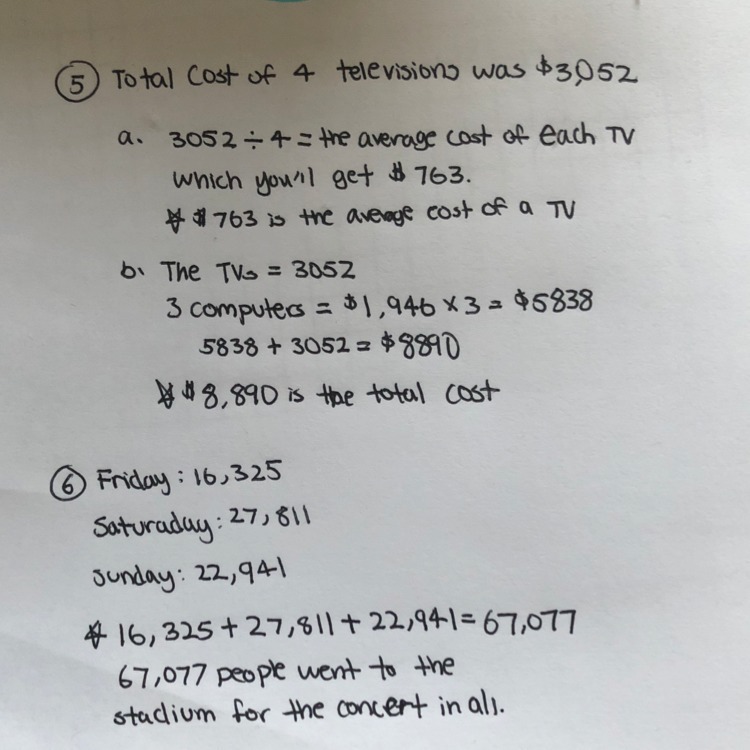 5 Total Cost of 4 televisions was $3,052
a. 3052 ÷ 4 = the average cost of each TV
which you'll get $763.
* $763 is the average cost of a TV
b. The TVs = 3052
3 computers = $1,946 × 3 = $5838
5838 + 3052 = $8890
* $8,890 is the total cost
6 Friday: 16,325
Saturaday: 27,811
Sunday: 22,941
* 16,325 + 27,811 + 22,941 = 67,077
67,077 people went to the
stadium for the concert in all.